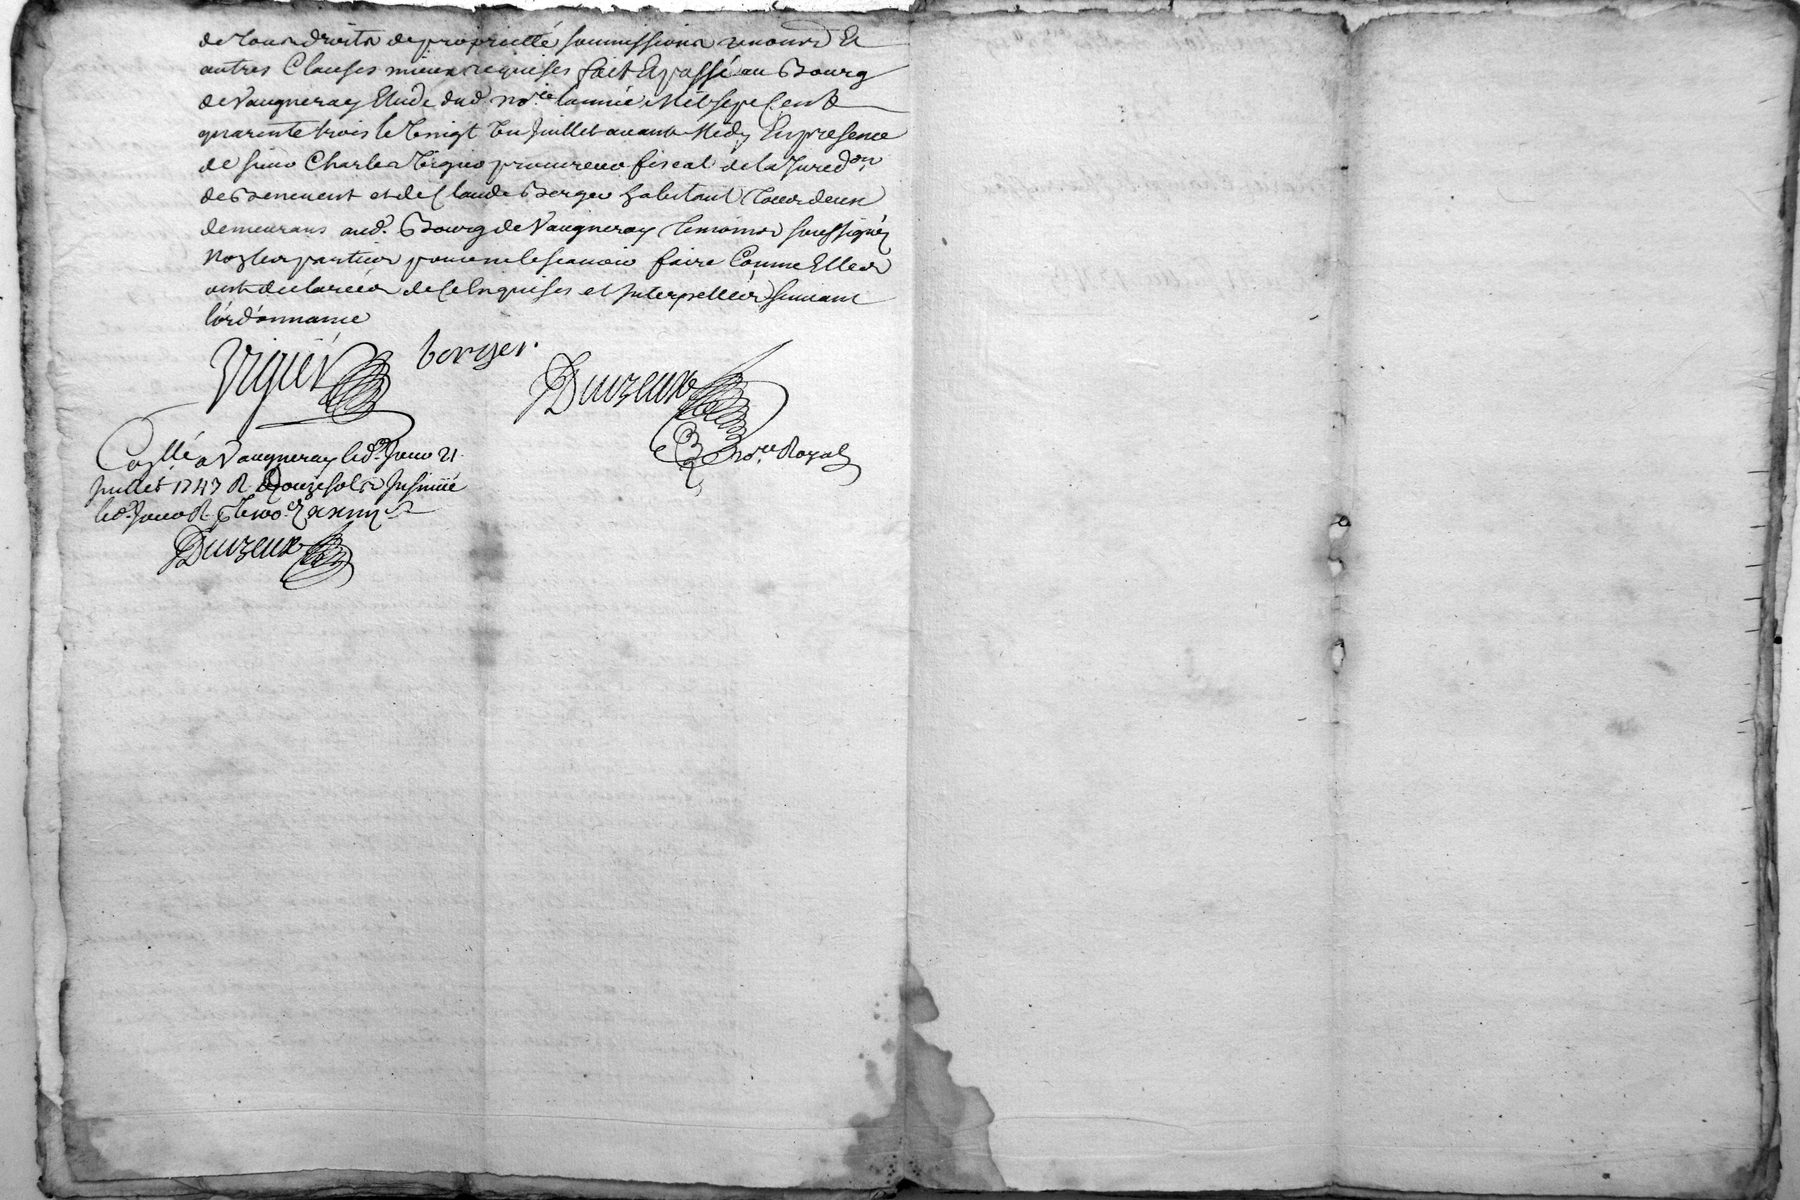 de tous droits de proprietté soumissions renonon Et
autres Clauses mieux requises fait Et passé au Bourg
de Vaugneray Etude dud. no.re L'année Mil sept Cent
quarente trois le Vingt Un Juillet avant Midy En presence
de sieur Charles Viguier procureur fiscal de la Juredon
de Benevent et de Claude Berger habitant tous deux
demeurans aud. Bourg de Vaugneray temoins soussignés
Non les parties pour ne le scavoir faire Comme Elles
ont declarées de ce Enquises et Interpellées suivant
l'ordonnance
Viguier berger.
Duizeux
no.re Royal
Con.llé a Vaugneray led. Jour 21
Juillet 1743 R. Douze sols Insinué
led. Jour R.
Duizeux